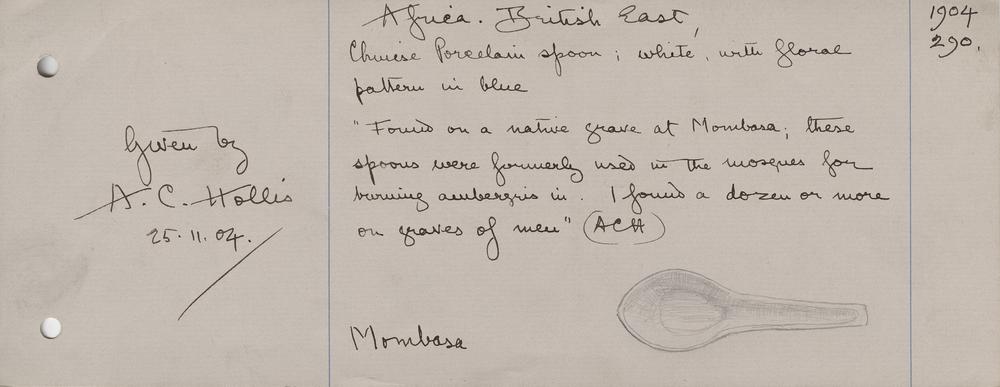 Given by
A. C. Hollis
25. 11. 04.
Africa. British East,
Chinese Porcelain spoon ; white, with floral
pattern in blue
"Found on a native grave at Mombasa; these
spoons were formerly used in the mosques for
burning ambergris in. I found a dozen or more
on graves of men" (ACH)
Mombasa
1904
290.